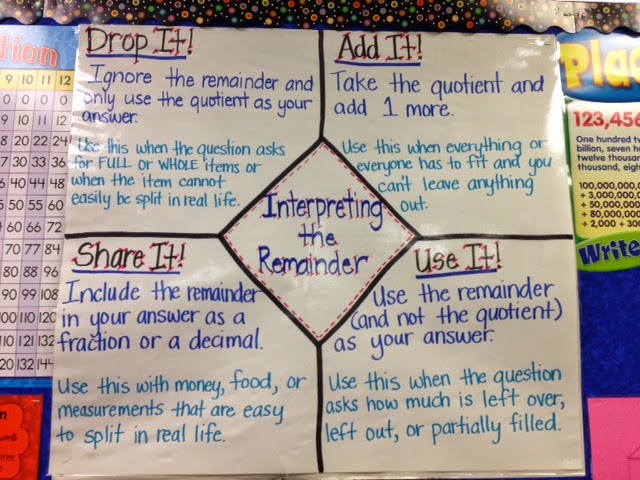 Drop It!
Ignore the remainder and
only use the quotient as your
answer.
Use this when the question asks
for FULL or WHOLE items or
when the item cannot
easily be split in real life.
Add It!
Take the quotient and
add 1 more.
Use this when everything or
everyone has to fit and you
can't leave anything
out.
Interpreting
the
Remainder
Share It!
Include the remainder
in your answer as a
fraction or a decimal.
Use this with money, food, or
measurements that are easy
to split in real life.
Use It!
Use the remainder
(and not the quotient)
as your answer.
Use this when the question
asks how much is left over,
left out, or partially filled.
9 10 11 12
0 0 0 0
9 10 11 12
18 20 22 24
27 30 33 36
36 40 44 48
70 77 84
80 88 96
90 99 108
100 110 120
110 121 132
120 132 144
Plac
123,456
One hundred tw
billion, seven hu
twelve thousand,
thousand, eigh
100,000,000,
+ 3,000,000,
+ 50,000,00
+ 80,000,00
+ 2,000 + 30
Write